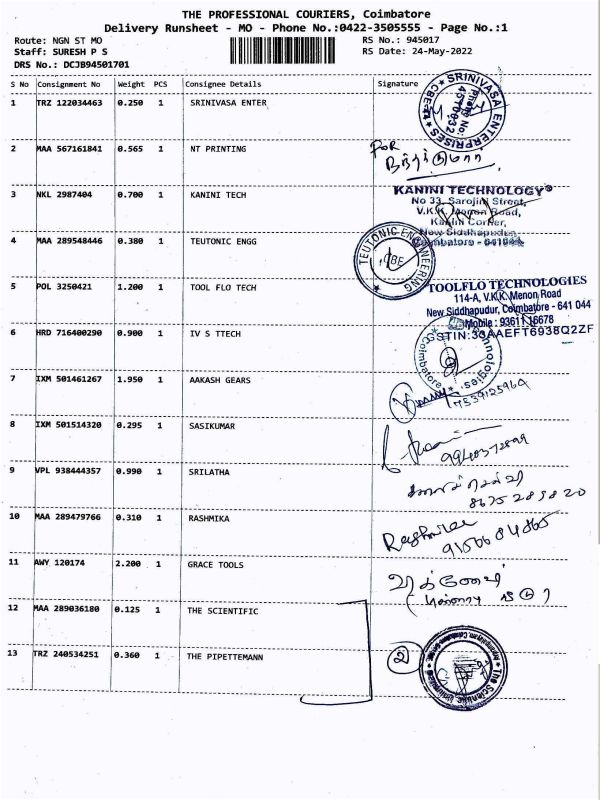 THE PROFESSIONAL COURIERS, Coimbatore
Delivery Runsheet - MO - Phone No.:0422-3505555 - Page No.:1
Route: NGN ST MO
RS No.: 945017
Staff: SURESH P S
RS Date: 24-May-2022
DRS No.: DCJB94501701
S No Consignment No Weight PCS Consignee Details Signature
1 TRZ 122034463 0.250 1 SRINIVASA ENTER
SRINIVASA ENTERPRISES
Phone No:
CBE-44
2 MAA 567161841 0.565 1 NT PRINTING
For
நந்தகுமார்
3 NKL 2987404 0.700 1 KANINI TECH
KANINI TECHNOLOGY
No 33, Sarojini Street,
V.K.K. Menon Road,
Kanini Corner,
New Siddhapudur,
Coimbatore - 641044
4 MAA 289548446 0.380 1 TEUTONIC ENGG
TEUTONIC ENGINEERING
CBE
5 POL 3250421 1.200 1 TOOL FLO TECH
TOOLFLO TECHNOLOGIES
114-A, V.K.K. Menon Road
New Siddhapudur, Coimbatore - 641 044
Mobile : 93611 16678
GSTIN:33AAEFT6938Q2ZF
6 HRD 716400290 0.900 1 IV S TTECH
Coimbatore
7 IXM 501461267 1.950 1 AAKASH GEARS
7539125969
8 IXM 501514320 0.295 1 SASIKUMAR
9 VPL 938444357 0.990 1 SRILATHA
8675285820
10 MAA 289479766 0.310 1 RASHMIKA
Rashmika
9156684865
11 AWY 120174 2.200 1 GRACE TOOLS
12 MAA 289036180 0.125 1 THE SCIENTIFIC
13 TRZ 240534251 0.360 1 THE PIPETTEMANN
2